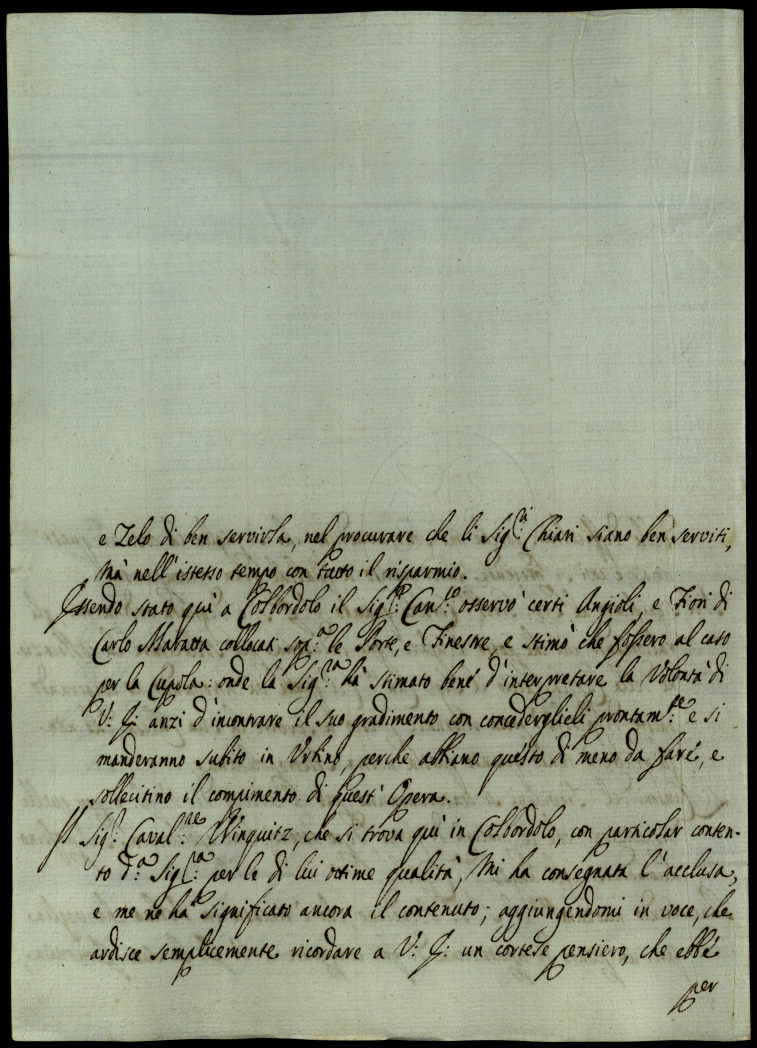 e Zelo di ben servirla, nel procurare che li Sig.ri Chiari siano ben serviti,
mà nell'istesso tempo con tutto il risparmio.
Essendo stato quì a Colbordolo il Sig.r Can.co osservò certi Angioli, e Fiori di
Carlo Maratta collocati sop.a le Porte, e Finestre, e stimò che fossero al caso
per la Cupola: onde la Sig.ra hà stimato bene d'interpretare la Volontà di
V: S: anzi d'incontrare il suo gradimento con concederglieli prontam.te e si
manderanno subito in Urbino, perche abbiano questo di meno da fare, e
sollecitino il compimento di quest'Opera.
Il Sig.r Caval.re Winquitz, che si trova quì in Colbordolo, con particolar conten-
to d.a Sig.ra per le di lui ottime qualità, mi ha consegnata l'acclusa,
e me ne hà significato ancora il contenuto; aggiungendomi in voce, che
ardisce semplicemente ricordare a V: S: un cortese pensiero, che ebbe
per